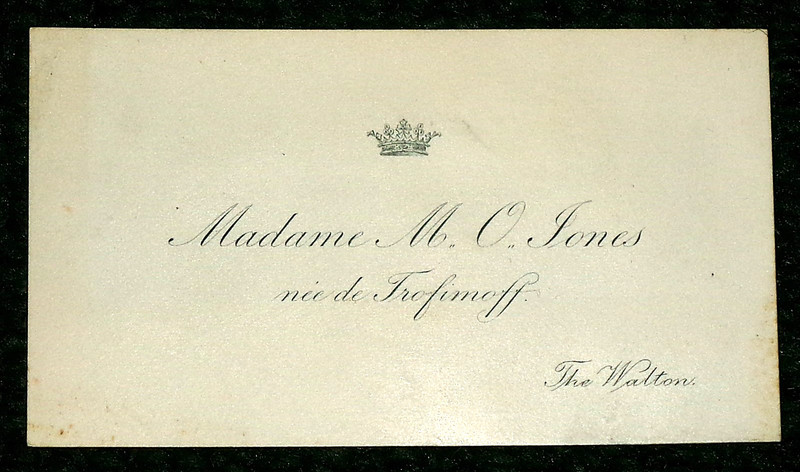 Madame M. O. Jones
née de Trofimoff.
The Walton.